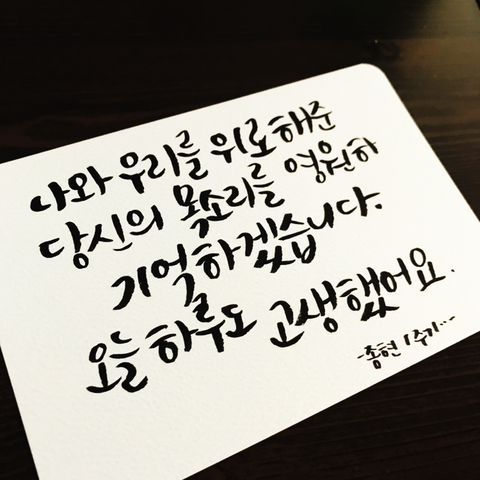 나와 우리를 위로해준
당신의 목소리를 영원히
기억하겠습니다.
오늘 하루도 고생했어요.
-종현 1주기..-